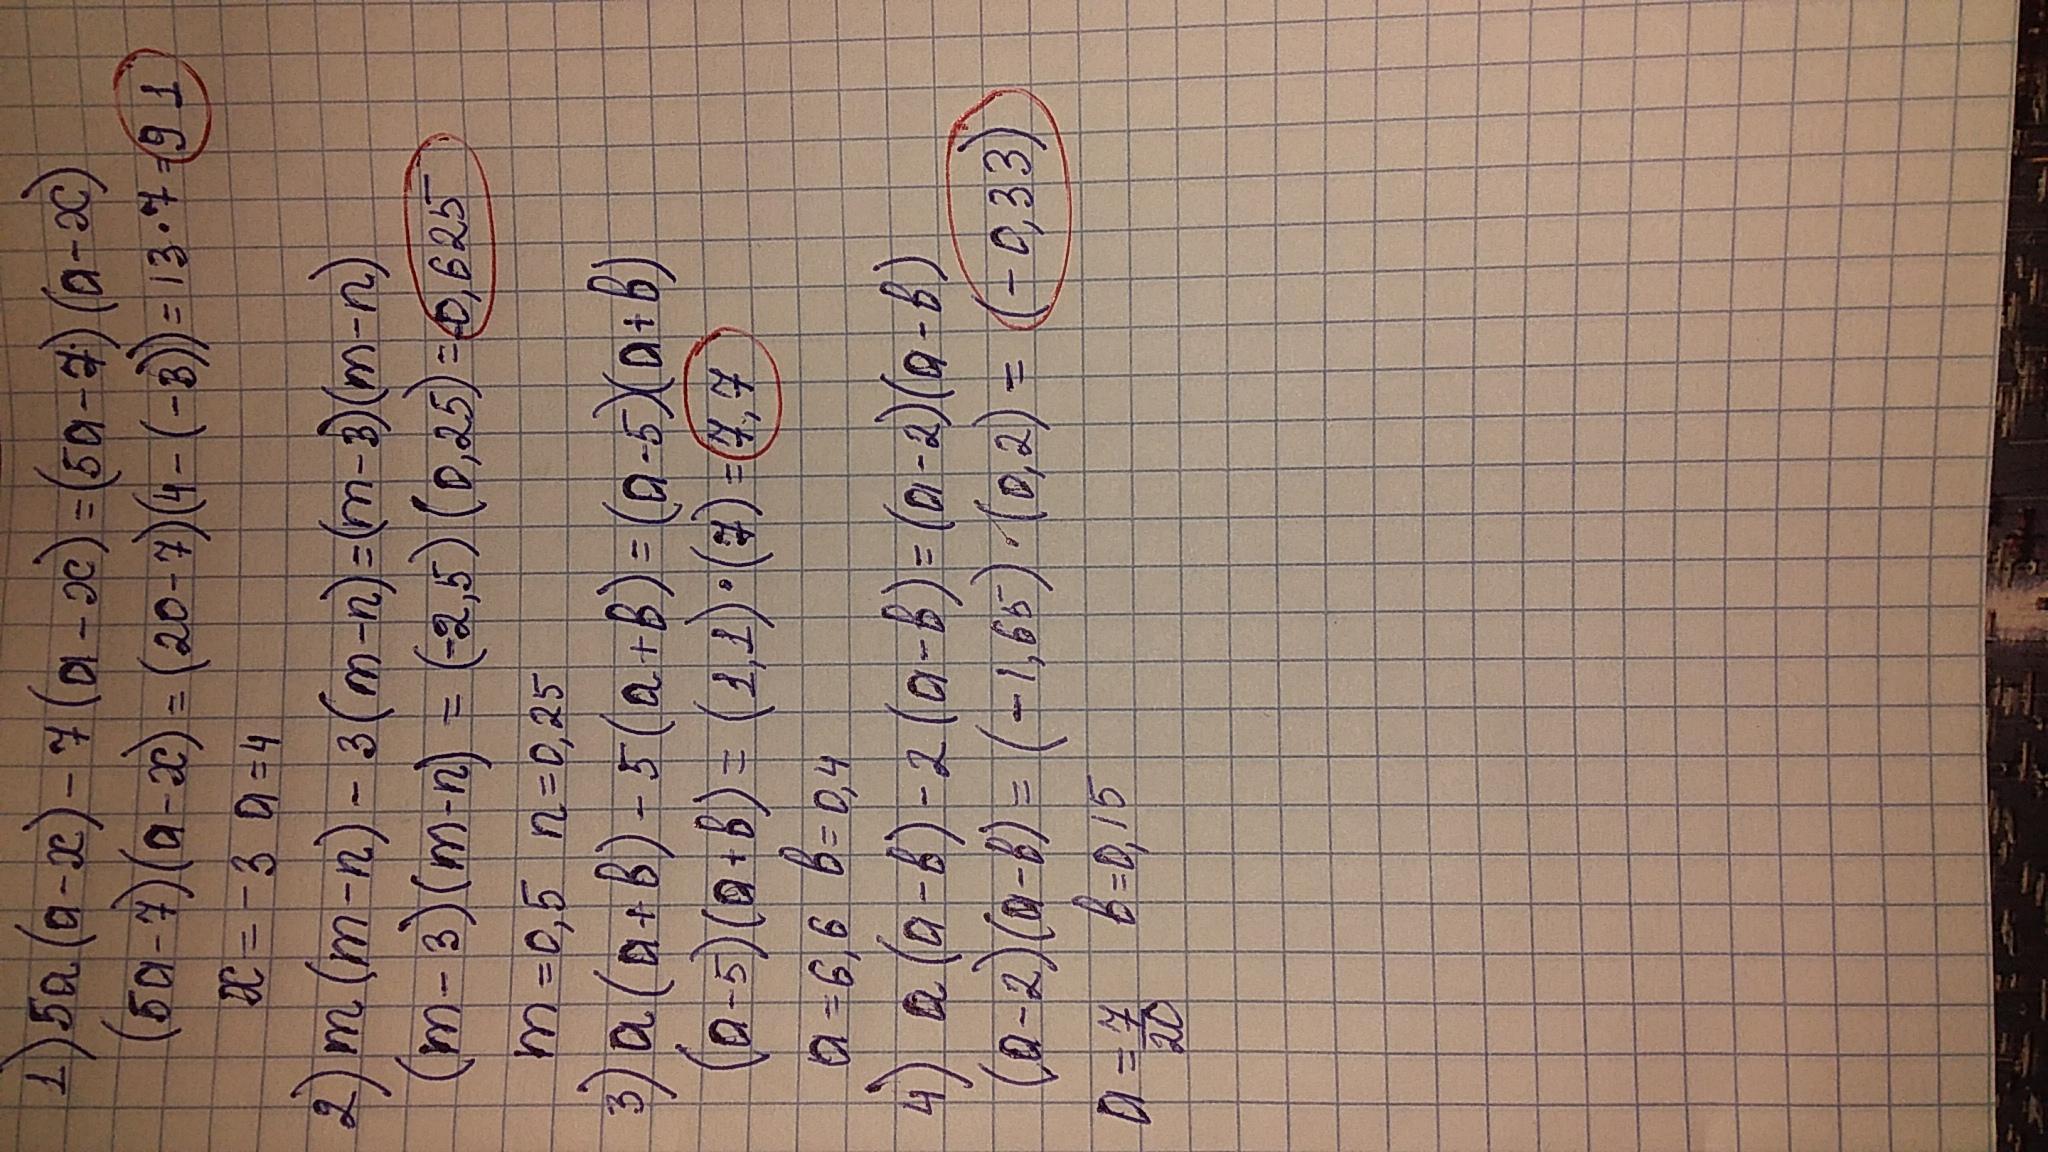 1) 5a(a-x)-7(a-x)=(5a-7)(a-x)
(5a-7)(a-x)=(20-7)(4-(-3))=13·7=91
x=-3 a=4
2) m(m-n)-3(m-n)=(m-3)(m-n)
(m-3)(m-n)=(-2,5)(0,25)=-0,625
m=0,5 n=0,25
3) a(a+b)-5(a+b)=(a-5)(a+b)
(a-5)(a+b)=(1,1)·(7)=7,7
a=6,6 b=0,4
4) a(a-b)-2(a-b)=(a-2)(a-b)
(a-2)(a-b)=(-1,65)·(0,2)=(-0,33)
a=7/20 b=0,15